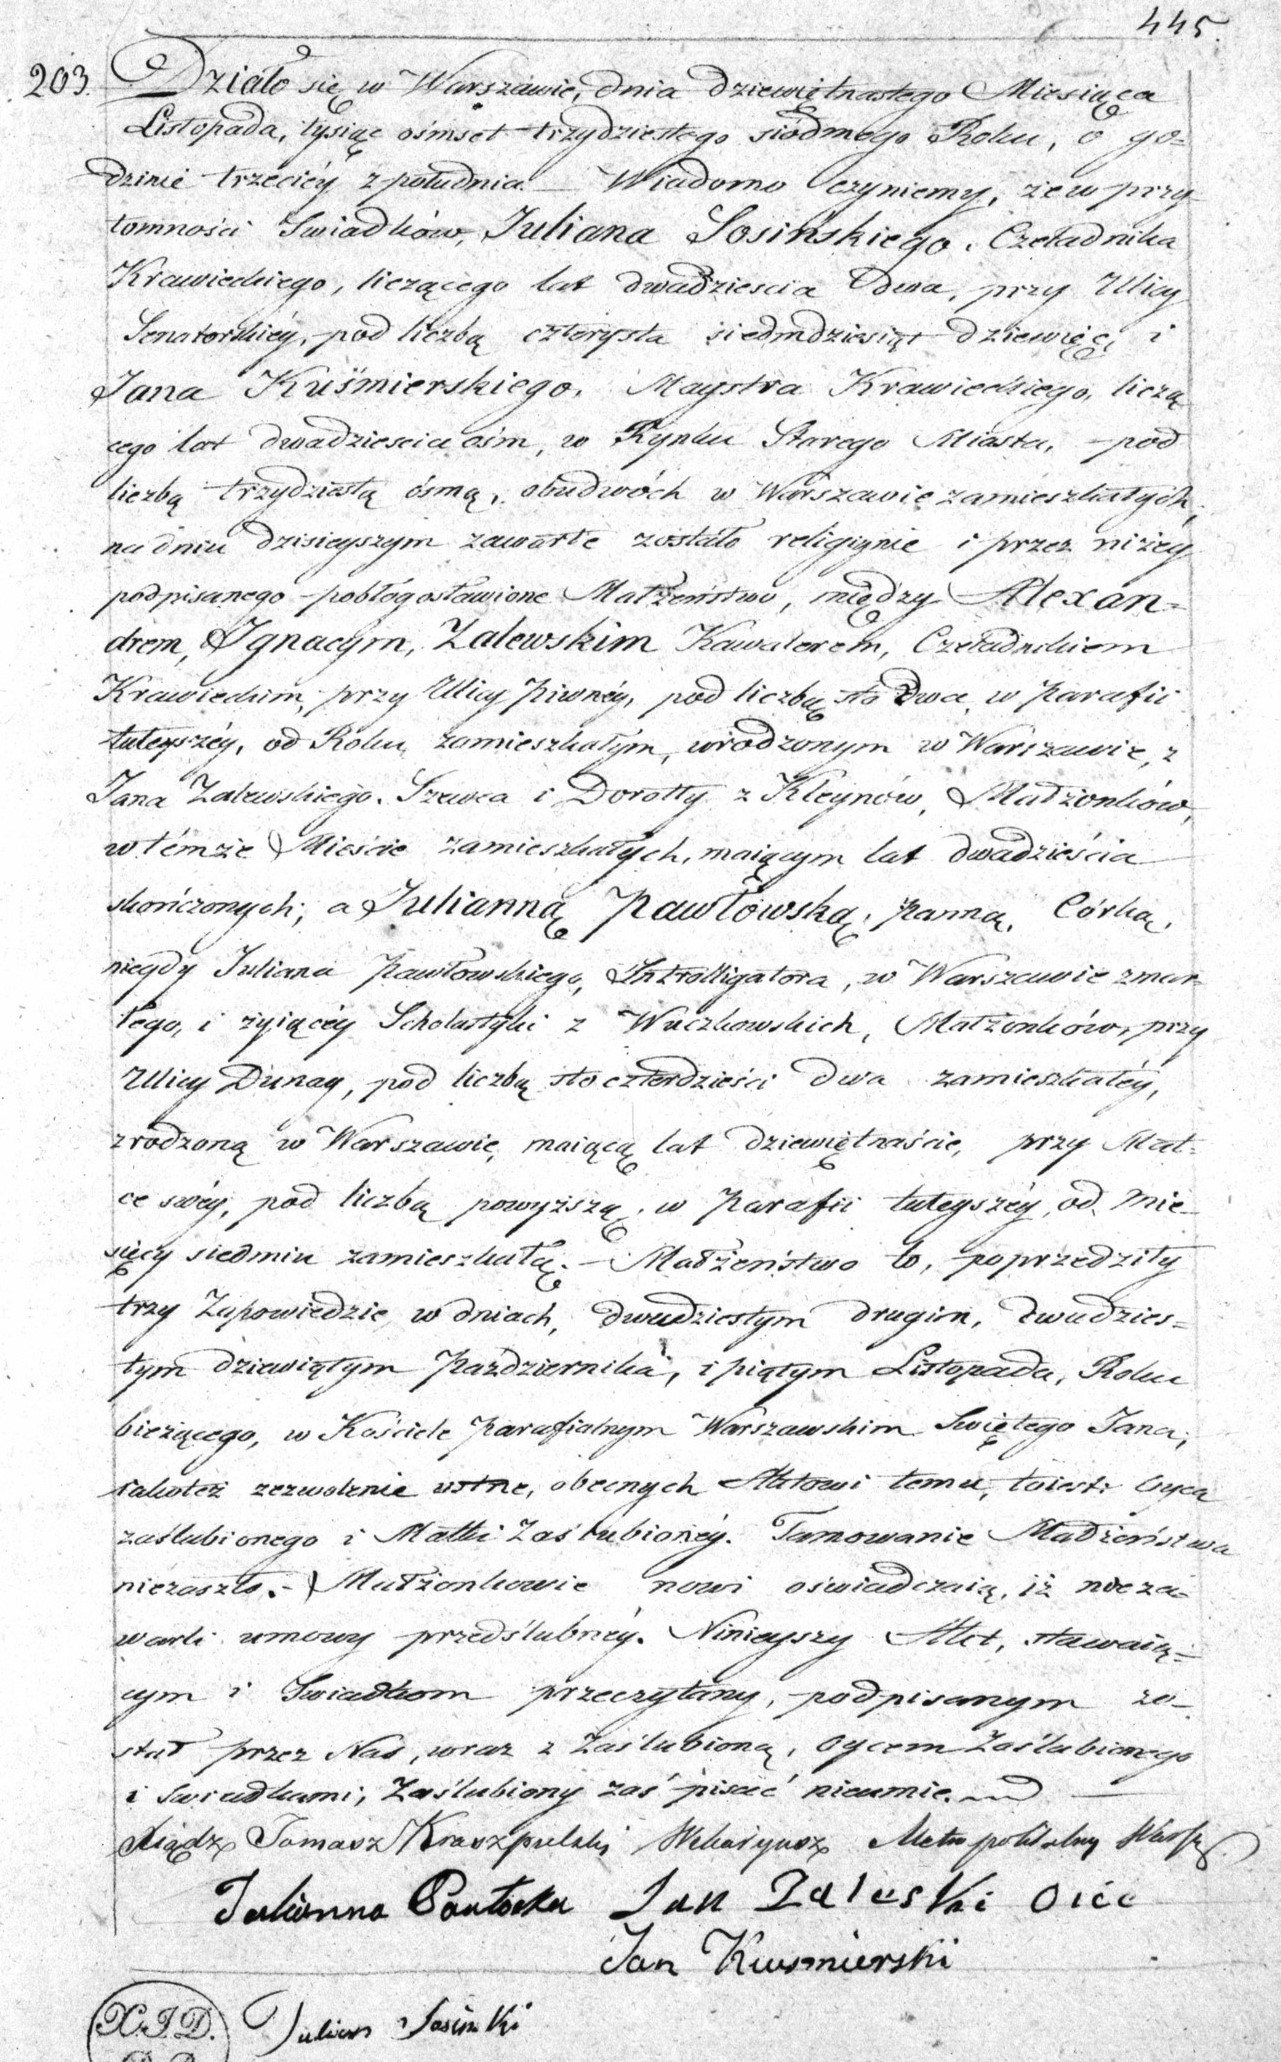 445.
203. Działo się w Warszawie, dnia dziewiętnastego Miesiąca
Listopada, tysiąc ośmset trzydziestego siódmego Roku, o go=
dzinie trzeciéy z południa — Wiadomo czyniemy, że w przy
tomności Swiadków, Juliana Sosińskiego, Czeladnika
Krawieckiego, liczącego lat dwadziescia dwa, przy Ulicy
Senatorskiéy, pod liczbą czterysta siedmdziesiąt dziewięć, i
Jana Kuśmierskiego, Maystra Krawieckiego, liczą
cego lat dwadziescia ośm, w Rynku Starego Miasta, pod
liczbą trzydziestą ósmą, obudwóch w Warszawie zamieszkałych,
na dniu dzisieyszym zawarte zostało religiynie i przez niżey
podpisanego pobłogosławione Małżeństwo, między Alexan=
drem, Ignacym, Zalewskim Kawalerem, Czeladnikiem
Krawieckim, przy Ulicy Piwnéy, pod liczbą sto dwa, w Parafii
tuteyszéy, od Roku zamieszkałym, urodzonym w Warszawie, z
Jana Zalewskiego, Szewca i Dorotty z Kleynów, Małżonków,
w témże Mieście zamieszkałych, maiącym lat dwadzieścia
skończonych; a Julianną Pawłowską, Panną, Córką,
niegdy Juliana Pawłowskiego, Introlligatora, w Warszawie zmar=
łego, i żyiącéy Scholastyki z Wuczkowskich, Małżonków, przy
Ulicy Dunay, pod liczbą sto czterdzieści dwa zamieszkałéy,
zrodzoną w Warszawie, maiącą lat dziewiętnaście, przy Mat=
ce swéy, pod liczbą powyższą, w Parafii tuteyszéy, od Mie=
sięcy siedmiu zamieszkałą. — Małżeństwo to, poprzedziły
trzy Zapowiedzie, w dniach, dwudziestym drugim, dwudzies=
tym dziewiątym Października, i piątym Listopada, Roku
bieżącego, w Kościele Parafialnym Warszawskim Swiętego Jana,
takoteż zezwolenie ustne, obecnych Aktowi temu, toiest: Oyca
zaślubionego i Matki Zaślubionéy. Tamowanie Małżeństwa
niezaszło. — Małżonkowie nowi oświadczaią, iż nieza=
warli umowy przedślubnéy. Ninieyszy Akt, stawaią=
cym i Swiadkom przeczytany, podpisanym zo=
stał przez Nas, wraz z Zaślubioną, Oycem Zaślubionego
i Swiadkami, Zaślubiony zaś pisać nieumie. —
Xiądz Tomasz Wikaryusz Metropolitalny Warsz.
Julianna Pawłocka Jan Zaleski Oicc
Jan Kusmierski
X.J.D.
Julian Sosinski